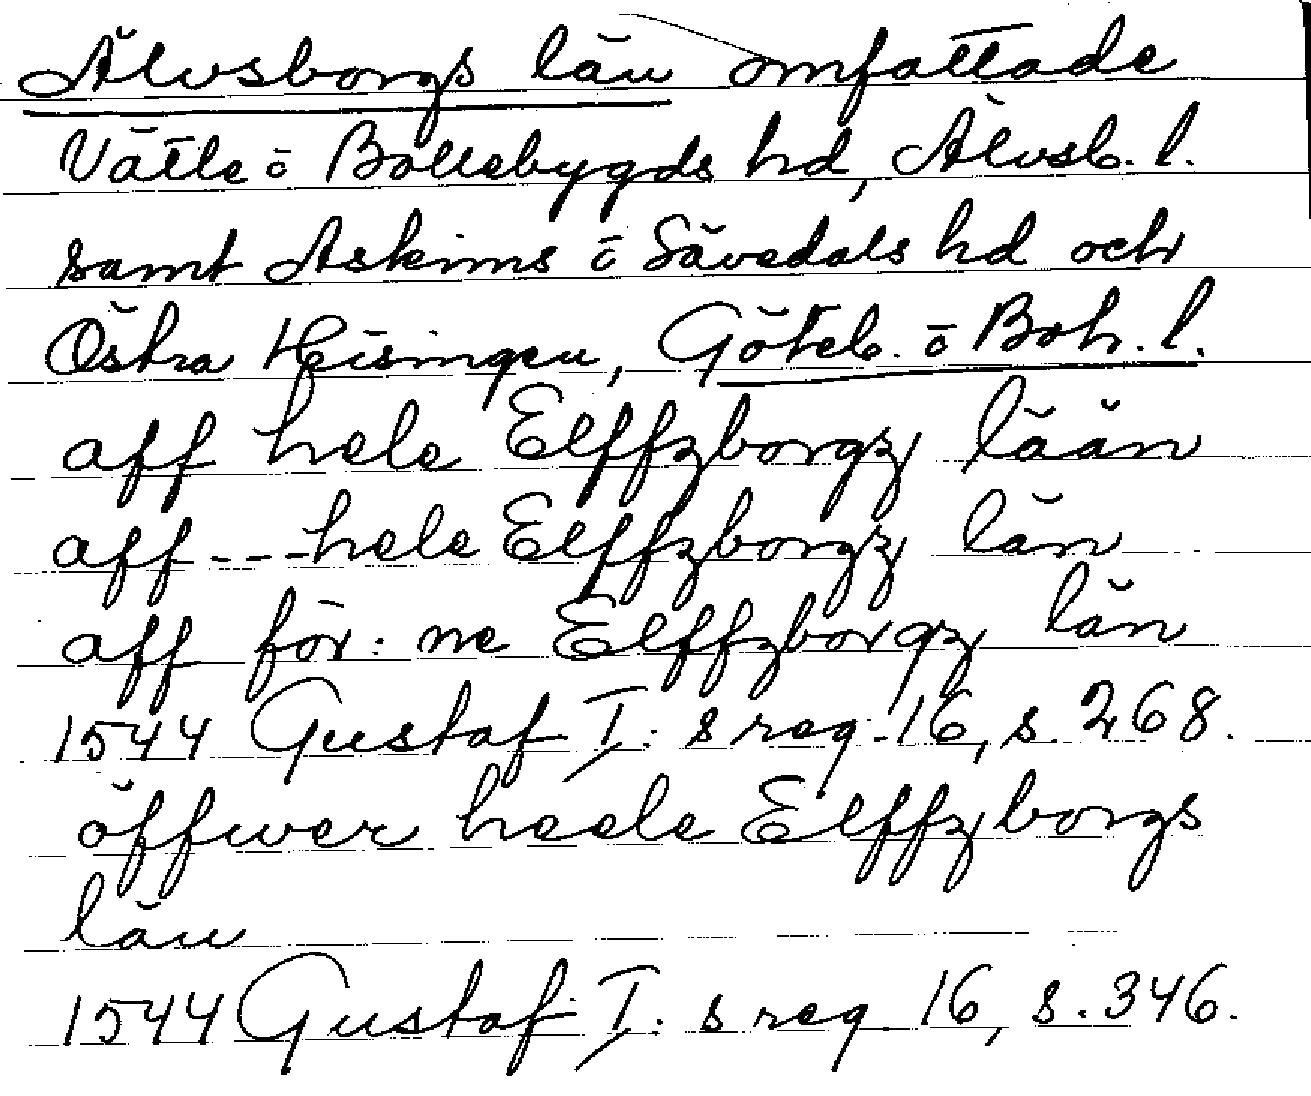 Älvsborgs län omfattade
Vättle o Bollebygds hd, Älvsb. l.
samt Askims o Sävedals hd och
Östra Hisingen, Göteb. o Boh. l.
aff hele Elffzborgz lään
aff --- hele Elffzborgz län
aff för: ne Elffzborgz län
1544 Gustaf I: s reg. 16, s. 268.
öffwer heele Elffzborgs
län
1544 Gustaf I: s reg. 16, s. 346.